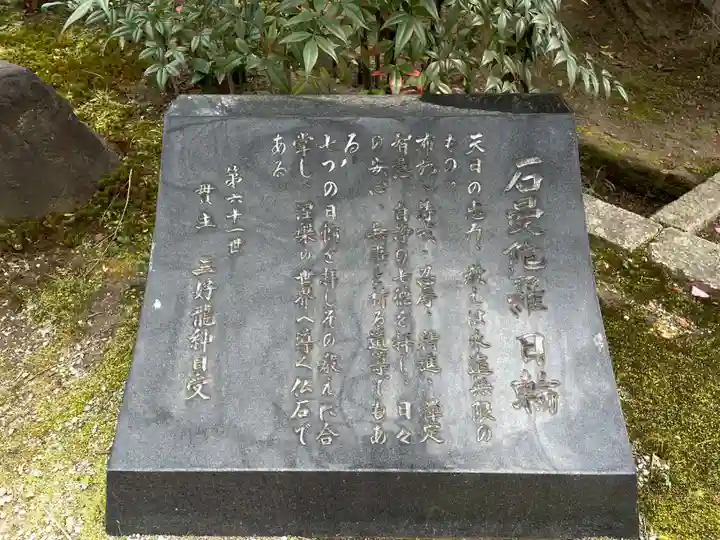 石曼陀羅 日輪
天日の恵み、教えは永遠無限の
もの。
布施、持戒、忍辱、精進、禅定
智慧、自尊の七徳を拝し、日々
の安心、無事を祈る道筋でもあ
る。
七つの日輪を拝しその教えに合
掌し、涅槃の世界へ導く仏石で
ある
第六十一世
貫主 三好龍神自受